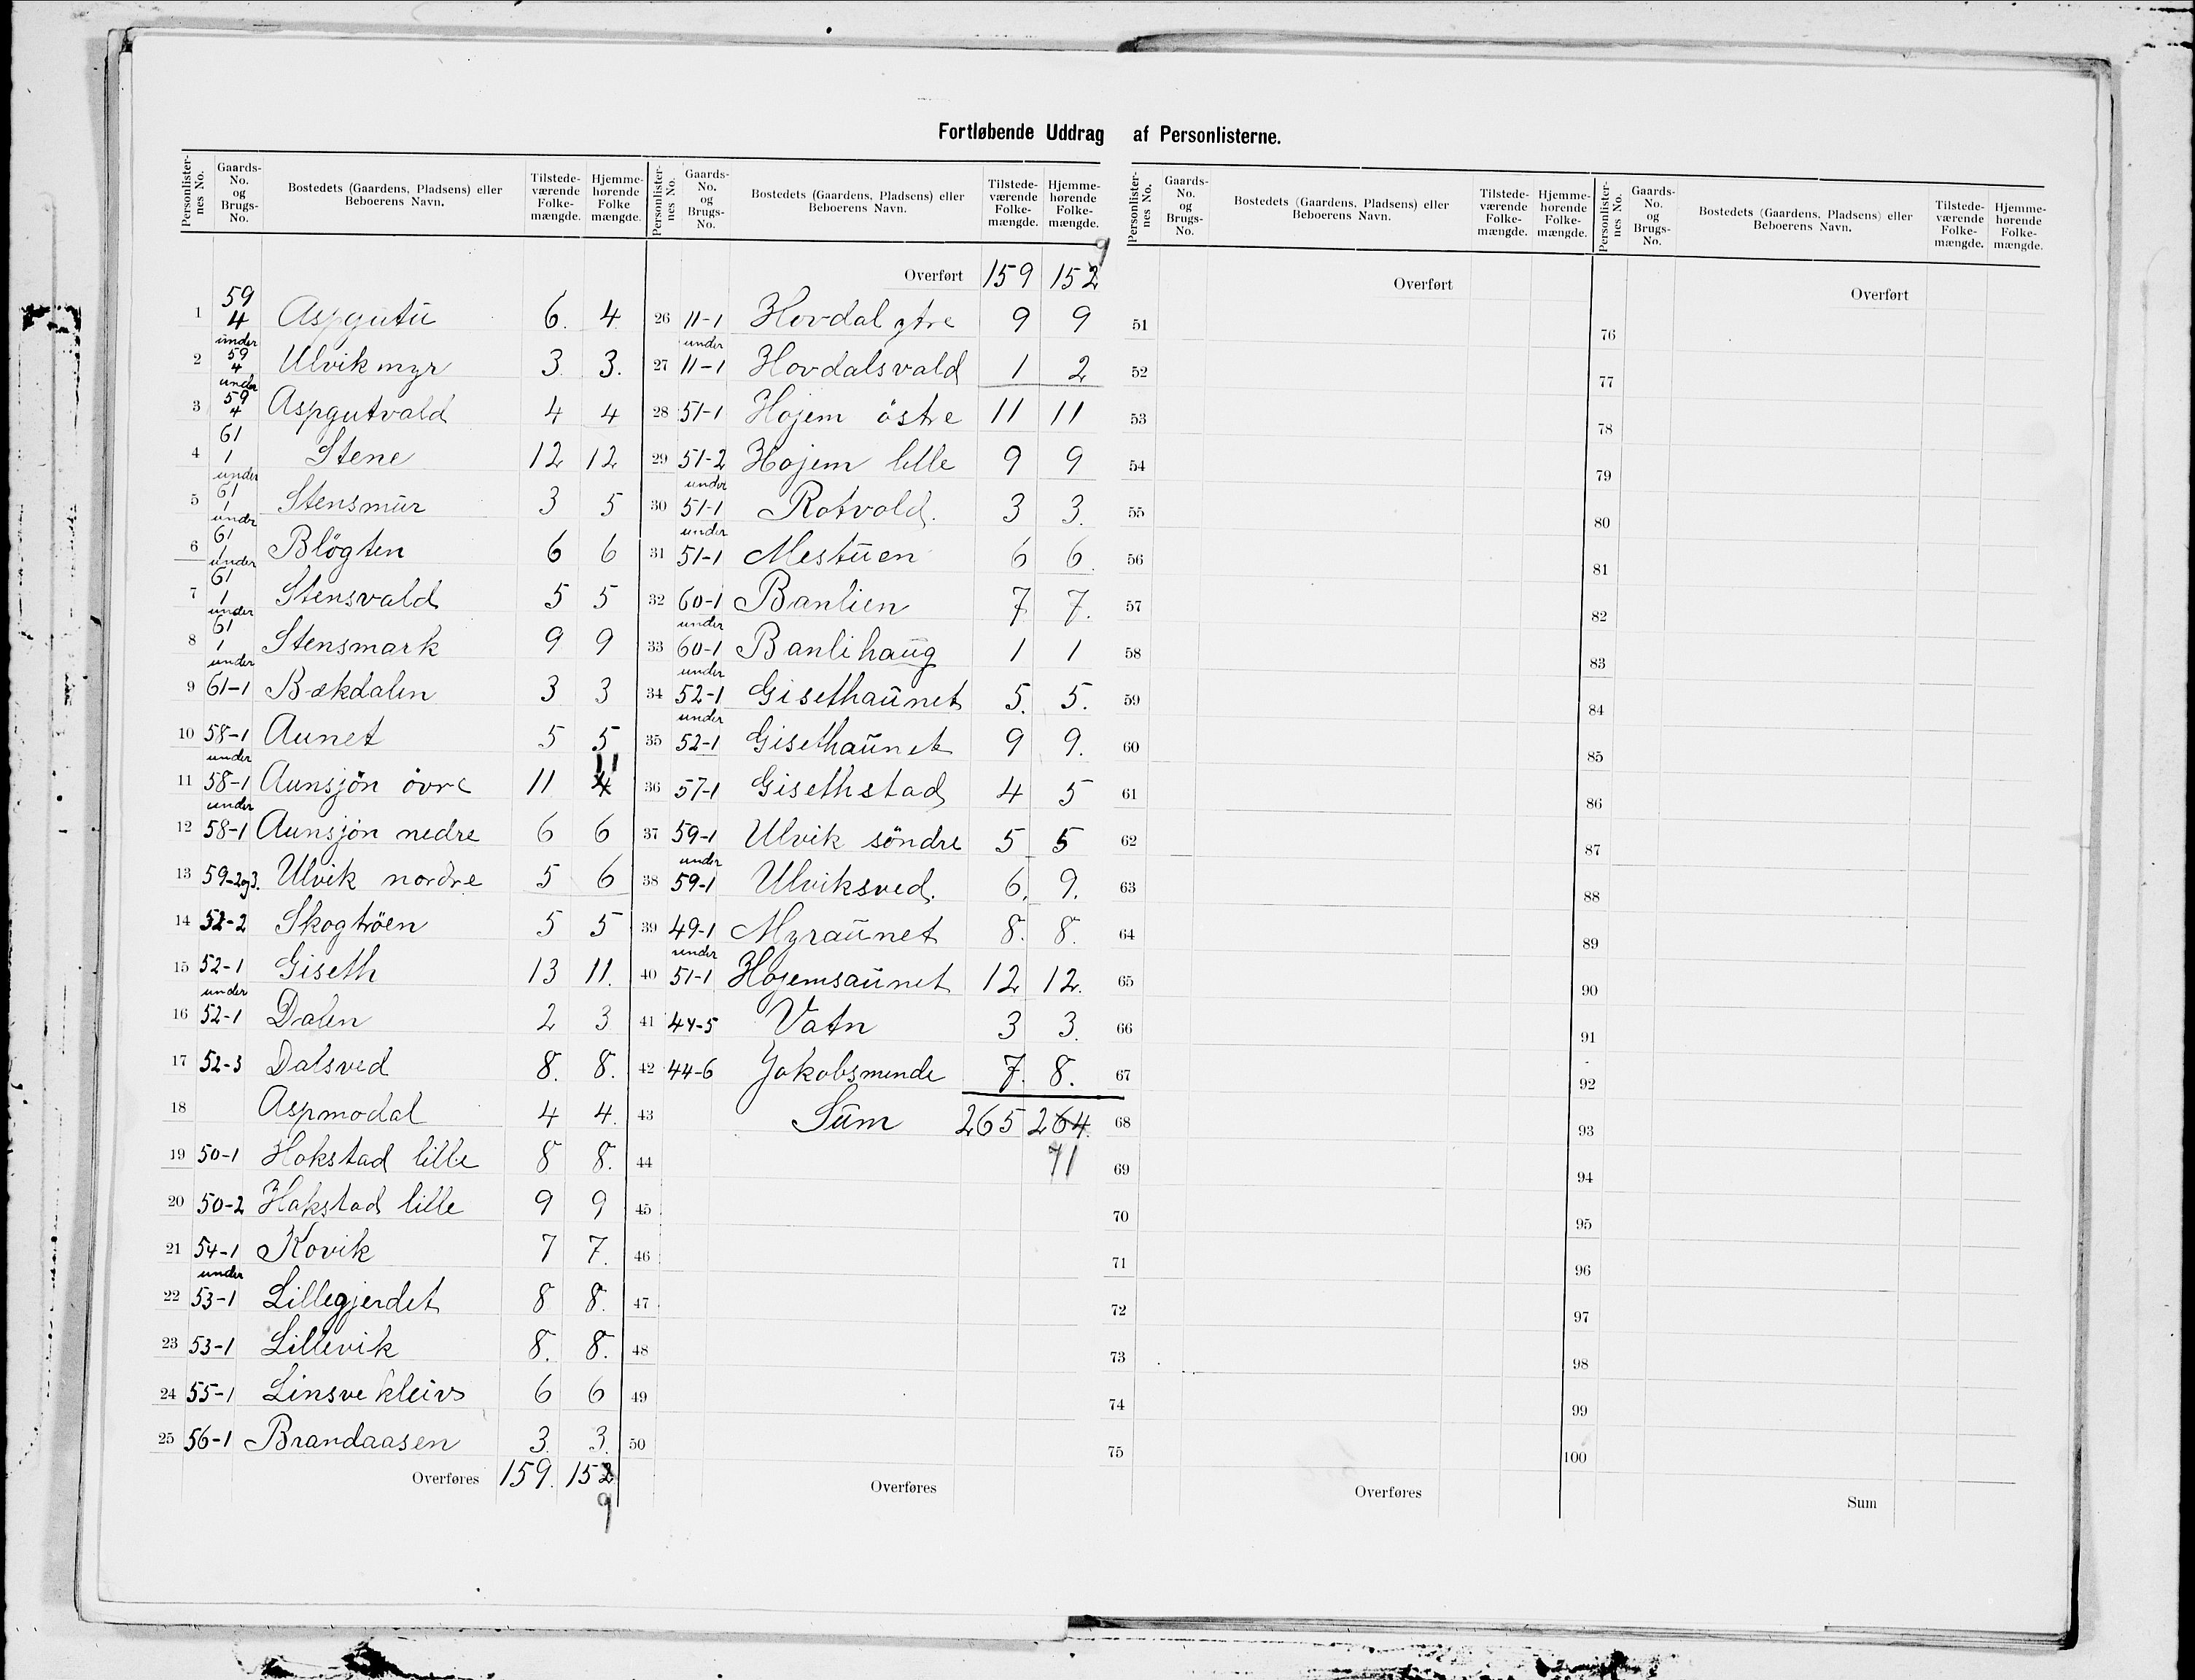 Fortløbende Uddrag af Personlisterne.
Personlisternes No. | Gaards-No. og Brugs-No. | Bostedets (Gaardens, Pladsens) eller Beboerens Navn. | Tilstedeværende Folkemængde. | Hjemmehørende Folke mængde.
1 | 59 4 | Aspgutu | 6. | 4
2 | under 59 4 | Ulvikmyr | 3. | 3.
3 | under 59 4 | Aspgutvald | 4 | 4
4 | 61 1 | Stene | 12 | 12
5 | under 61 1 | Stensmur | 3 | 5
6 | under 61 1 | Blögten | 6 | 6
7 | under 61 1 | Stensvald | 5 | 5
8 | under 61 1 | Stensmark | 9 | 9
9 | under 61-1 | Bækdalen | 3 | 3
10 | 58-1 | Aunet | 5 | 5
11 | under 58-1 | Aunsjön övre | 11 | 4 11
12 | under 58-1 | Aunsjön nedre | 6 | 6
13 | 59-2og3. | Ulvik nordre | 5 | 6
14 | 52-2 | Skogtröen | 5 | 5
15 | 52-1 | Giseth | 13 | 11.
16 | under 52-1 | Dalen | 2 | 3
17 | 52-3 | Dalsved | 8. | 8.
18 | Aspmodal | 4 | 4.
19 | 50-1 | Hokstad lille | 8 | 8.
20 | 50-2 | Hakstad lille | 9 | 9
21 | 54-1 | Kovik | 7 | 7.
22 | under 53-1 | Lillegjerdet | 8 | 8.
23 | 53-1 | Lillevik | 8. | 8.
24 | 55-1 | Linsvekleiv | 6 | 6
25 | 56-1 | Brandaasen | 3. | 3.
Overføres | 159. | 152 9
Personlisternes No. | Gaards-No. og Brugs-No. | Bostedets (Gaardens, Pladsens) eller Beboerens Navn. | Tilstedeværende Folkemængde. | Hjemmehørende Folkemængde.
Overført | 159 | 152 9
26 | 11-1 | Hovdal ytre | 9 | 9
27 | under 11-1 | Hovdalsvald | 1 | 2
28 | 51-1 | Hojem östre | 11 | 11
29 | 51-2 | Hojem lille | 9 | 9
30 | under 51-1 | Rotvold. | 3 | 3.
31 | under 51-1 | Mestuen | 6 | 6.
32 | 60-1 | Banlien | 7 | 7.
33 | under 60-1 | Banlihaug | 1 | 1
34 | under 52-1 | Gisethaunet | 5. | 5.
35 | under 52-1 | Gisethaunet | 9 | 9.
36 | 57-1 | Gisethstad | 4 | 5
37 | 59-1 | Ulvik söndre | 5 | 5
38 | under 59-1 | Ulviksved. | 6. | 9.
39 | 49-1 | Myraunet | 8. | 8.
40 | under 51-1 | Hojemsaunet | 12 | 12.
41 | 44-5 | Vatn | 3 | 3.
42 | 44-6 | Jakobsminde | 7. | 8.
43 | Sum | 265 | 264. 71
44
45
46
47
48
49
50
Overføres
Personlisternes No. | Gaards-No. og Brugs-No. | Bostedets (Gaardens, Pladsens) eller Beboerens Navn. | Tilstedeværende Folkemængde. | Hjemmehørende Folkemængde.
Overført
51
52
53
54
55
56
57
58
59
60
61
62
63
64
65
66
67
68
69
70
71
72
73
74
75
Overføres
Personlisternes No. | Gaards-No. og Brugs-No. | Bostedets (Gaardens, Pladsens) eller Beboerens Navn. | Tilstedeværende Folkemængde. | Hjemmehørende Folkemængde.
Overført
76
77
78
79
80
81
82
83
84
85
86
87
88
89
90
91
92
93
94
95
96
97
98
99
100
Sum